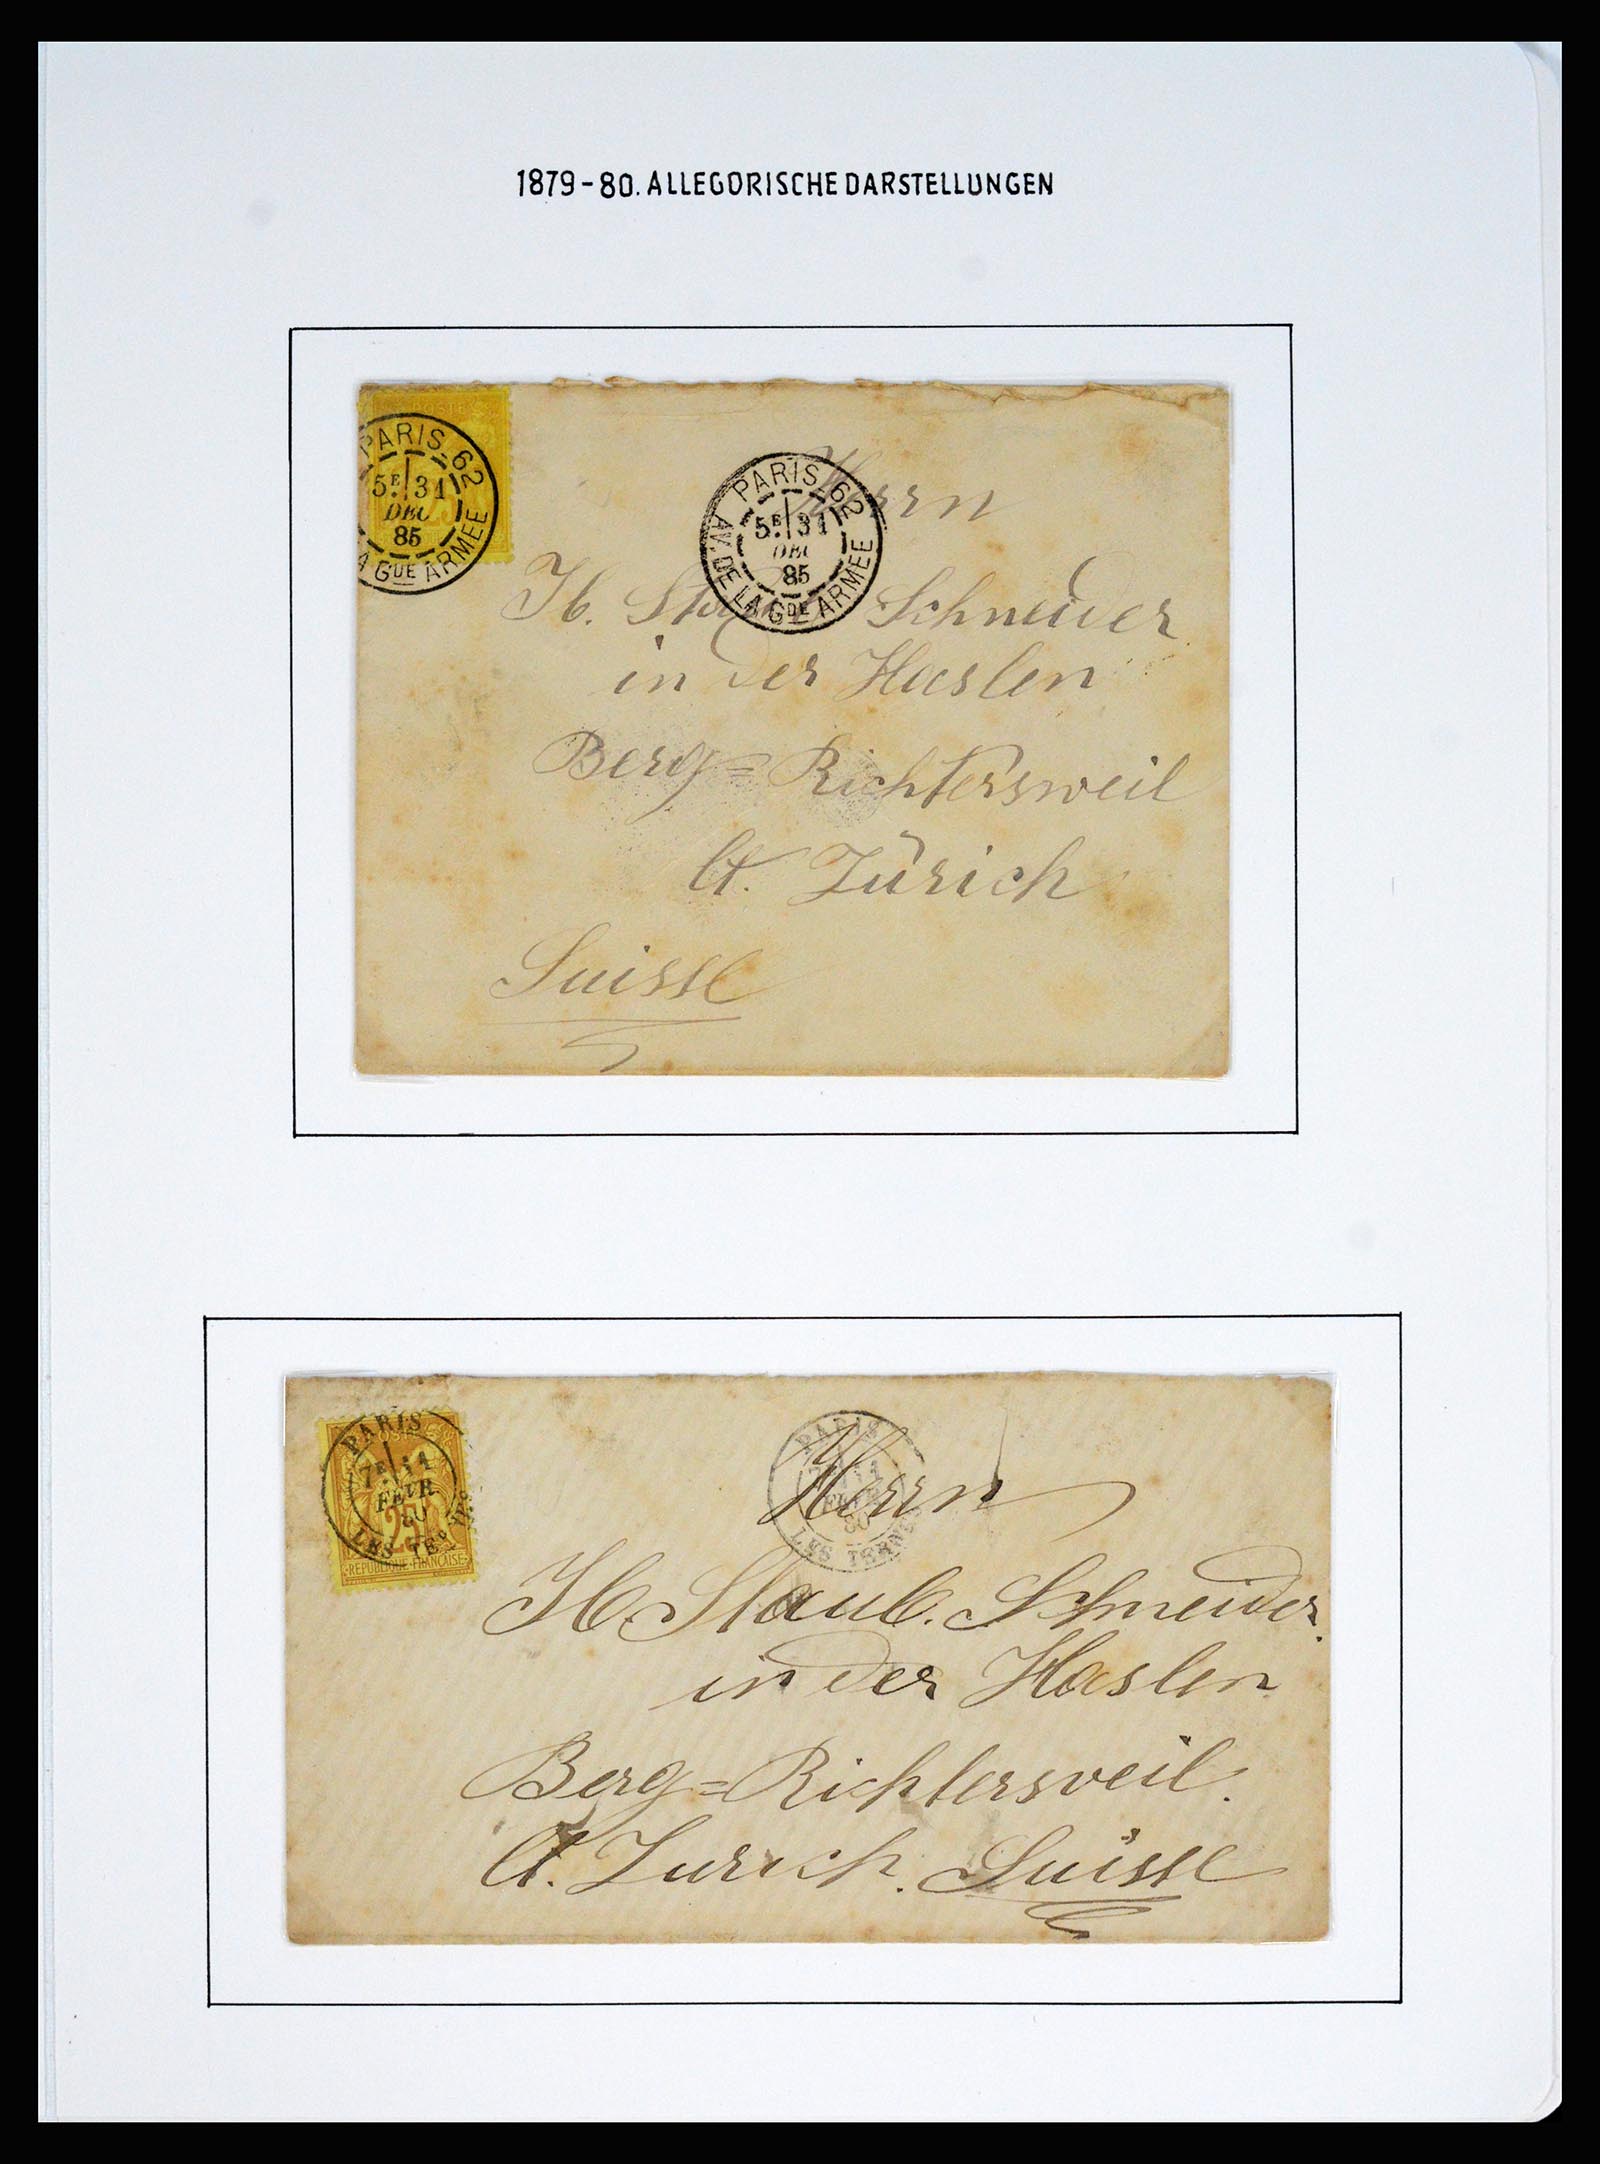 1879-80. ALLEGORISCHE DARSTELLUNGEN
POSTE
PARIS_62
5E 31
DEC
85
LA GDE ARMEE
PARIS_62
5E 31
DEC
85
AV. DE LA GDE ARMEE
Herrn
Hb. Schneider
in der Haslen
Berg=Richtersweil
Ct. Zürich
Suisse
PARIS
7E
FEVR
80
LES TERNES
25
REPUBLIQUE FRANCAISE
PARIS
FEVR
80
LES TERNES
Herrn
Hb. Staub. Schneider.
in der Haslen
Berg=Richtersweil.
Ct. Zurich. Suisse